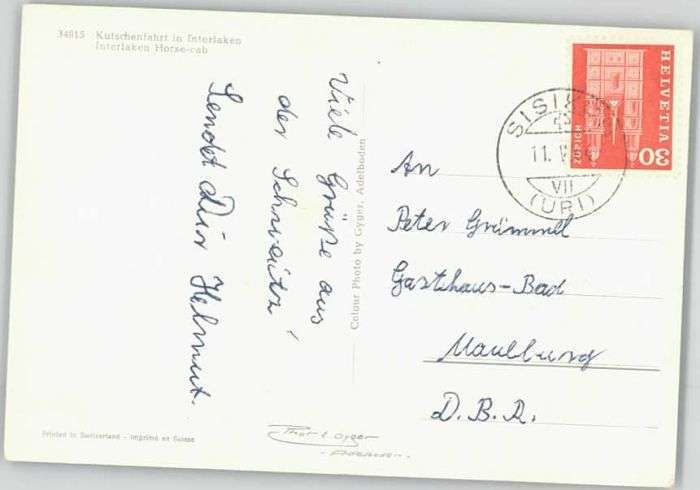 34915 Kutschenfahrt in Interlaken
Interlaken Horse-cab
Viele Grüße aus
der Schweitz
Sendet Dir Helmut.
Colour Photo by Gyger, Adelboden
HELVETIA
30
ZÜRICH
SISIKON
11. V
VII
(URI)
An
Peter Grümmel
Gasthaus-Bad
Maulburg
D.B.R.
Printed in Switzerland - Imprimé en Suisse
Gyger